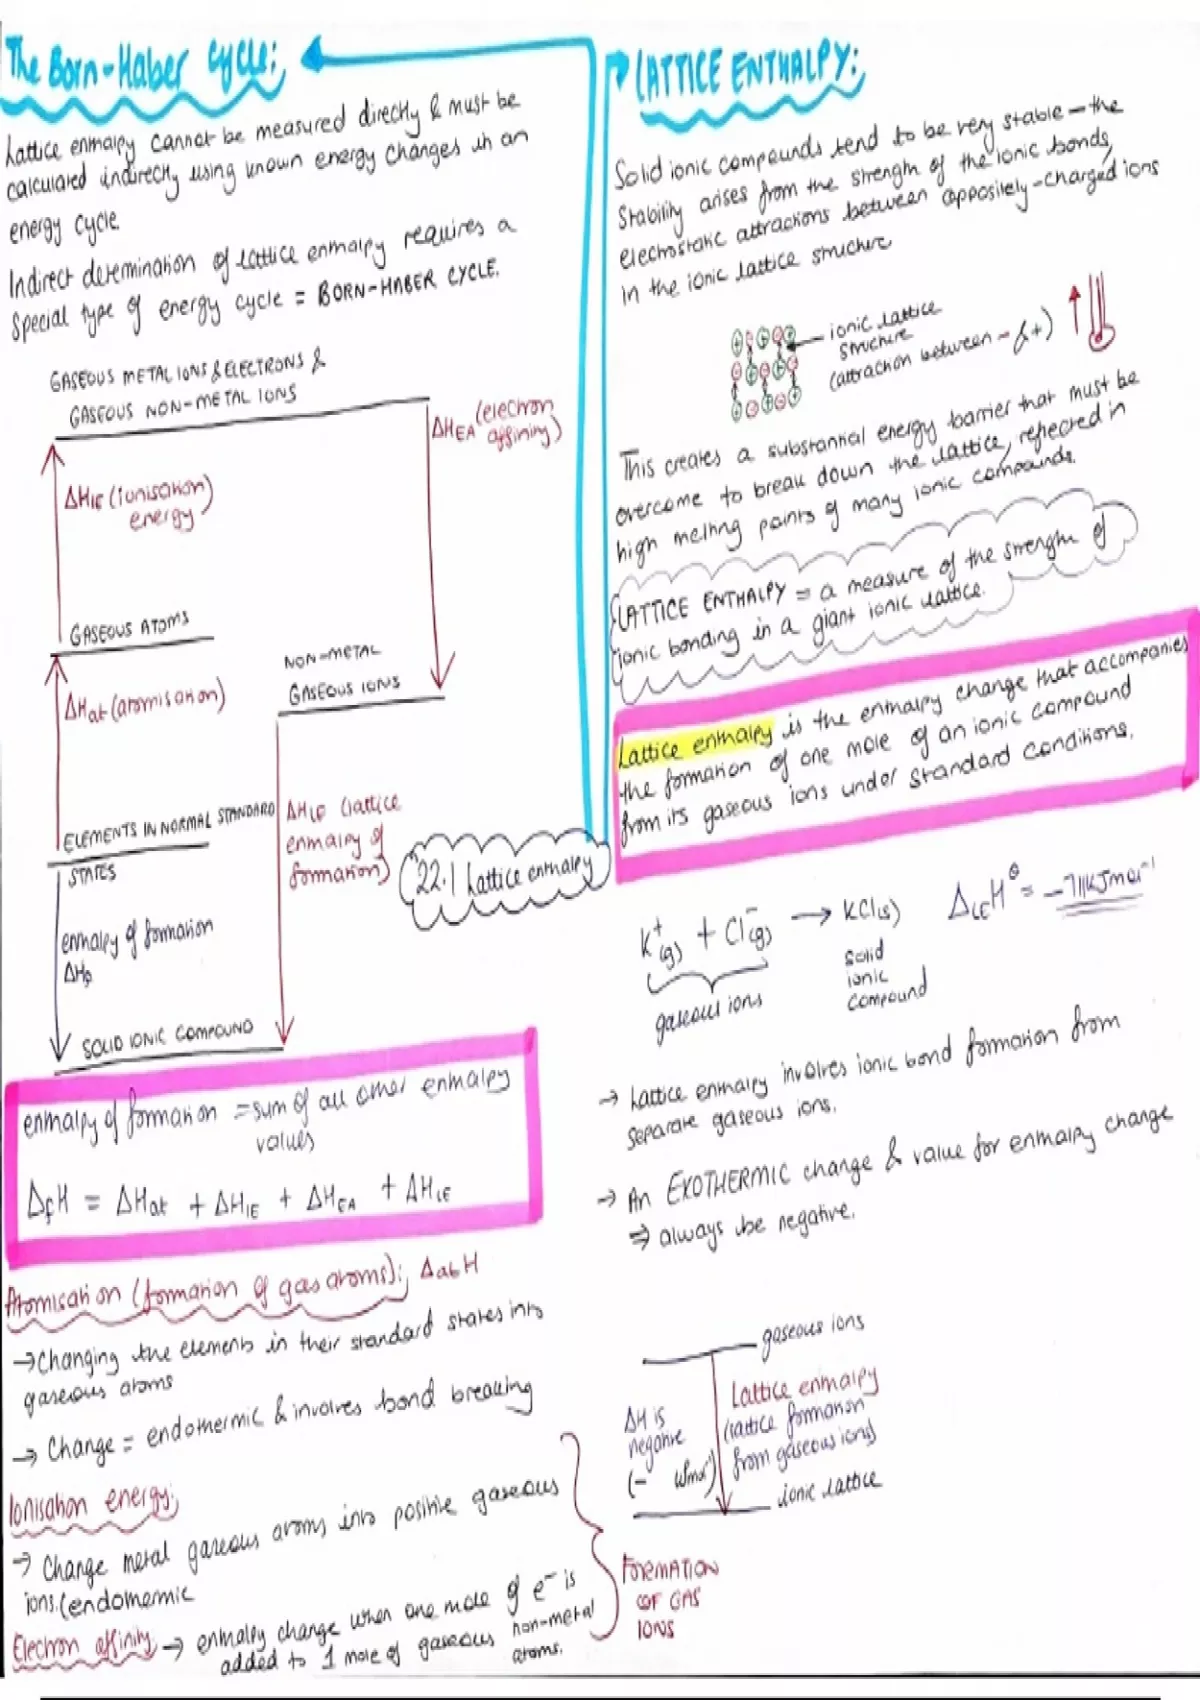 The Born-Haber cycle:
Lattice enthalpy cannot be measured directly & must be
calculated indirectly using known energy changes in an
energy cycle
Indirect determination of lattice enthalpy requires a
special type of energy cycle = BORN-HABER CYCLE.
GASEOUS METAL IONS & ELECTRONS &
GASEOUS NON-METAL IONS
ΔHIE (ionisation
energy)
ΔHEA (electron
affinity)
GASEOUS ATOMS
ΔHat (atomisation)
NON-METAL
GASEOUS IONS
ELEMENTS IN NORMAL STANDARD
STATES
ΔHLE (lattice
enthalpy of
formation)
enthalpy of formation
ΔHf
SOLID IONIC COMPOUND
22.1 Lattice enthalpy
enthalpy of formation = sum of all other enthalpy
values
ΔfH = ΔHat + ΔHIE + ΔHEA + ΔHLE
Atomisation (formation of gas atoms): ΔatH
→ Changing the elements in their standard states into
gaseous atoms
→ Change = endothermic & involves bond breaking
Ionisation energy:
→ Change metal gaseous atoms into positive gaseous
ions. (endothermic
Electron affinity → enthalpy change when one mole of e⁻ is
added to 1 mole of gaseous non-metal
atoms.
FORMATION
OF GAS
IONS
LATTICE ENTHALPY:
Solid ionic compounds tend to be very stable — the
stability arises from the strength of the ionic bonds,
electrostatic attractions between oppositely-charged ions
in the ionic lattice structure
ionic lattice
structure
(attraction between - & +)
This creates a substantial energy barrier that must be
overcome to break down the lattice, reflected in
high melting points of many ionic compounds.
LATTICE ENTHALPY = a measure of the strength of
ionic bonding in a giant ionic lattice.
Lattice enthalpy is the enthalpy change that accompanies
the formation of one mole of an ionic compound
from its gaseous ions under standard conditions.
K⁺(g) + Cl⁻(g) → KCl(s) ΔLEH⦵ = -711kJmol⁻¹
gaseous ions
solid
ionic
compound
→ Lattice enthalpy involves ionic bond formation from
separate gaseous ions.
→ An EXOTHERMIC change & value for enthalpy change
⇒ always be negative.
gaseous ions
ΔH is
negative
(- kJmol⁻¹)
Lattice enthalpy
(lattice formation
from gaseous ions)
ionic lattice